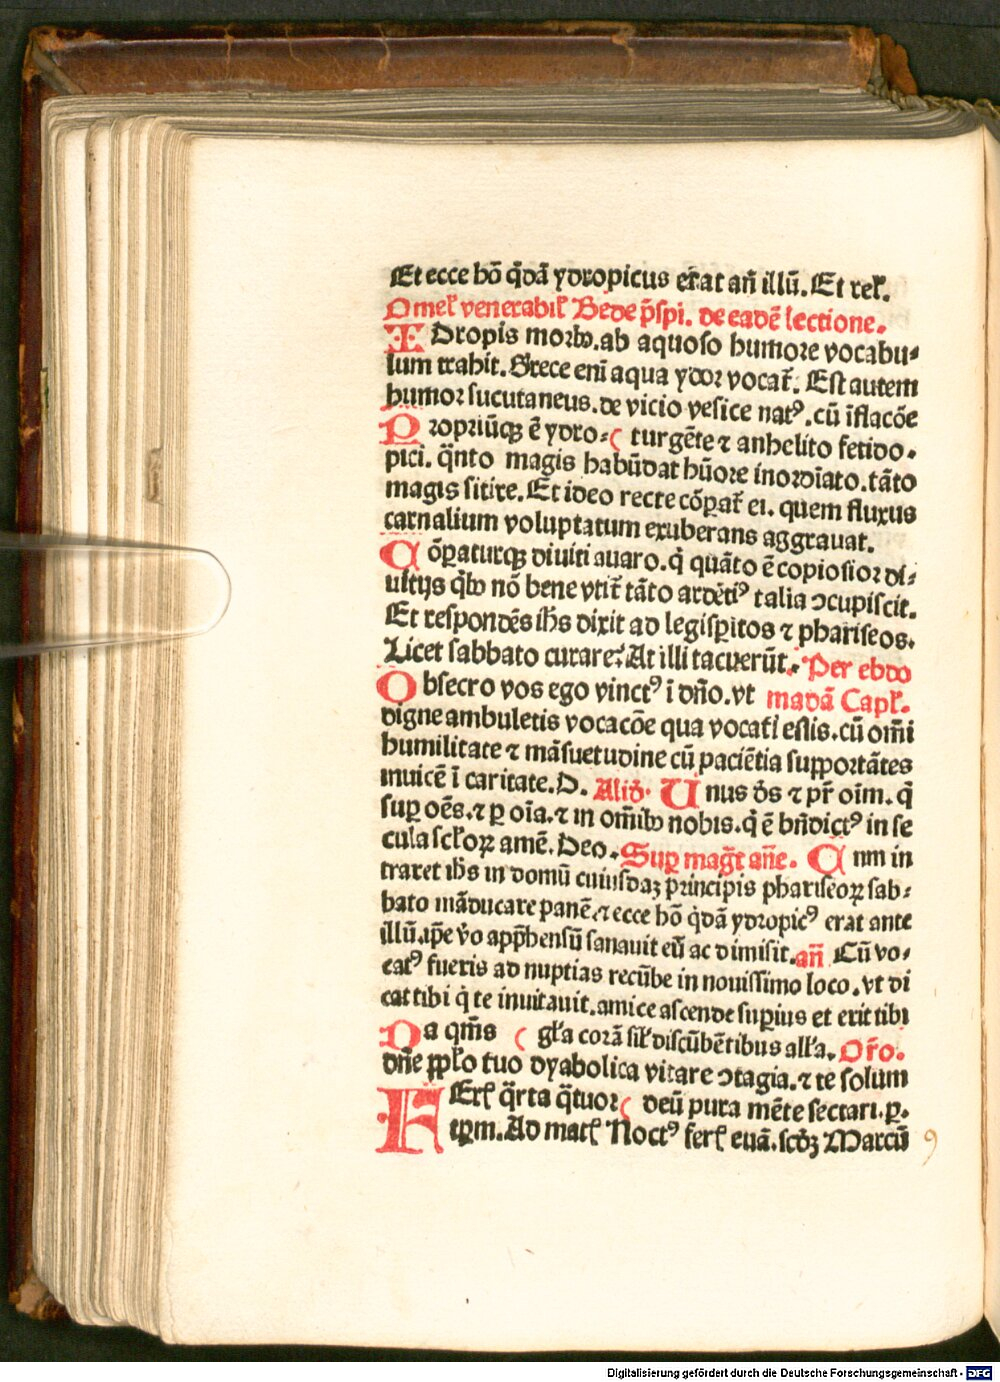 Et ecce hõ q̇dã ydropicus er̃at añ illũ. Et rel̃.
Omel̃ venerabil̃ Bede p̃spi. de eadẽ lectione.
IDropis morbꝰ. ab aquoso humore vocabu⸗
lum trahit. Grece eni̅ aqua ydor vocat̃. Est autem
humor sucutaneus. de vicio vesice natꝰ. cũ ĩflacõe
Propriũqꝫ ẽ ydro⸗ ( turgẽte ⁊ anhelito fetido.
pici. q̃nto magis habũdat hũore inordĩato. tãto
magis sitire. Et ideo recte cõꝑat̃ ei. quem fluxus
carnalium voluptatum exuberans aggrauat.
Cõꝑaturqꝫ diuiti auaro. q̇ quãto ẽ copiosior di⸗
uitijs q̇bꝰ nõ bene vtit̃ tãto ardẽtiꝰ talia ↄcupiscit.
Et respondẽs ihs dixit ad legisꝑitos ⁊ phariseos.
Licet sabbato curare? At illi tacuerũt. Per ebdo
Obsecro vos ego vinctꝰ ĩ dño. vt madã Capl̃.
digne ambuletis vocacõe qua vocati estis. cũ om̃i
humilitate ⁊ mãsuetudine cũ paciẽtia supportãtes
inuicẽ ĩ caritate. D. Aliḋ. Unus ds̃ ⁊ pr̃ oĩm. q̇
suꝑ oẽs. ⁊ ꝑ oĩa. ⁊ in om̃ibꝰ nobis. q̇ ẽ bñdictꝰ in se
cula scl̃oꝝ amẽ. Deo. Suꝑ mag̃t añe. Cum in
traret ihs in domũ cuiusdaꝫ principis phariseoꝝ sab⸗
bato mãducare panẽ. ⁊ ecce hõ q̇dã ydropicꝰ erat ante
illũ. ip̃e v̇o app̃hensũ sanauit eũ ac dimisit. añ Cũ vo⸗
catꝰ fueris ad nuptias recũbe in nouissimo loco. vt di
cat tibi q̇ te inuitauit. amice ascende suꝑius et erit tibi
Da qm̃s ( gl̃a corã sil̃ discũbẽtibus all̃a. Or̃o.
dñe ppl̃o tuo dyabolica vitare ↄtagia. ⁊ te solum
FErĩ q̃rta q̃tuor ( deũ pura mẽte sectari. ꝑ.
tꝑm. Ad matĩ Noctꝰ ferĩ euã. scd̃ꝫ Marcũ 9
Digitalisierung gefördert durch die Deutsche Forschungsgemeinschaft - DFG